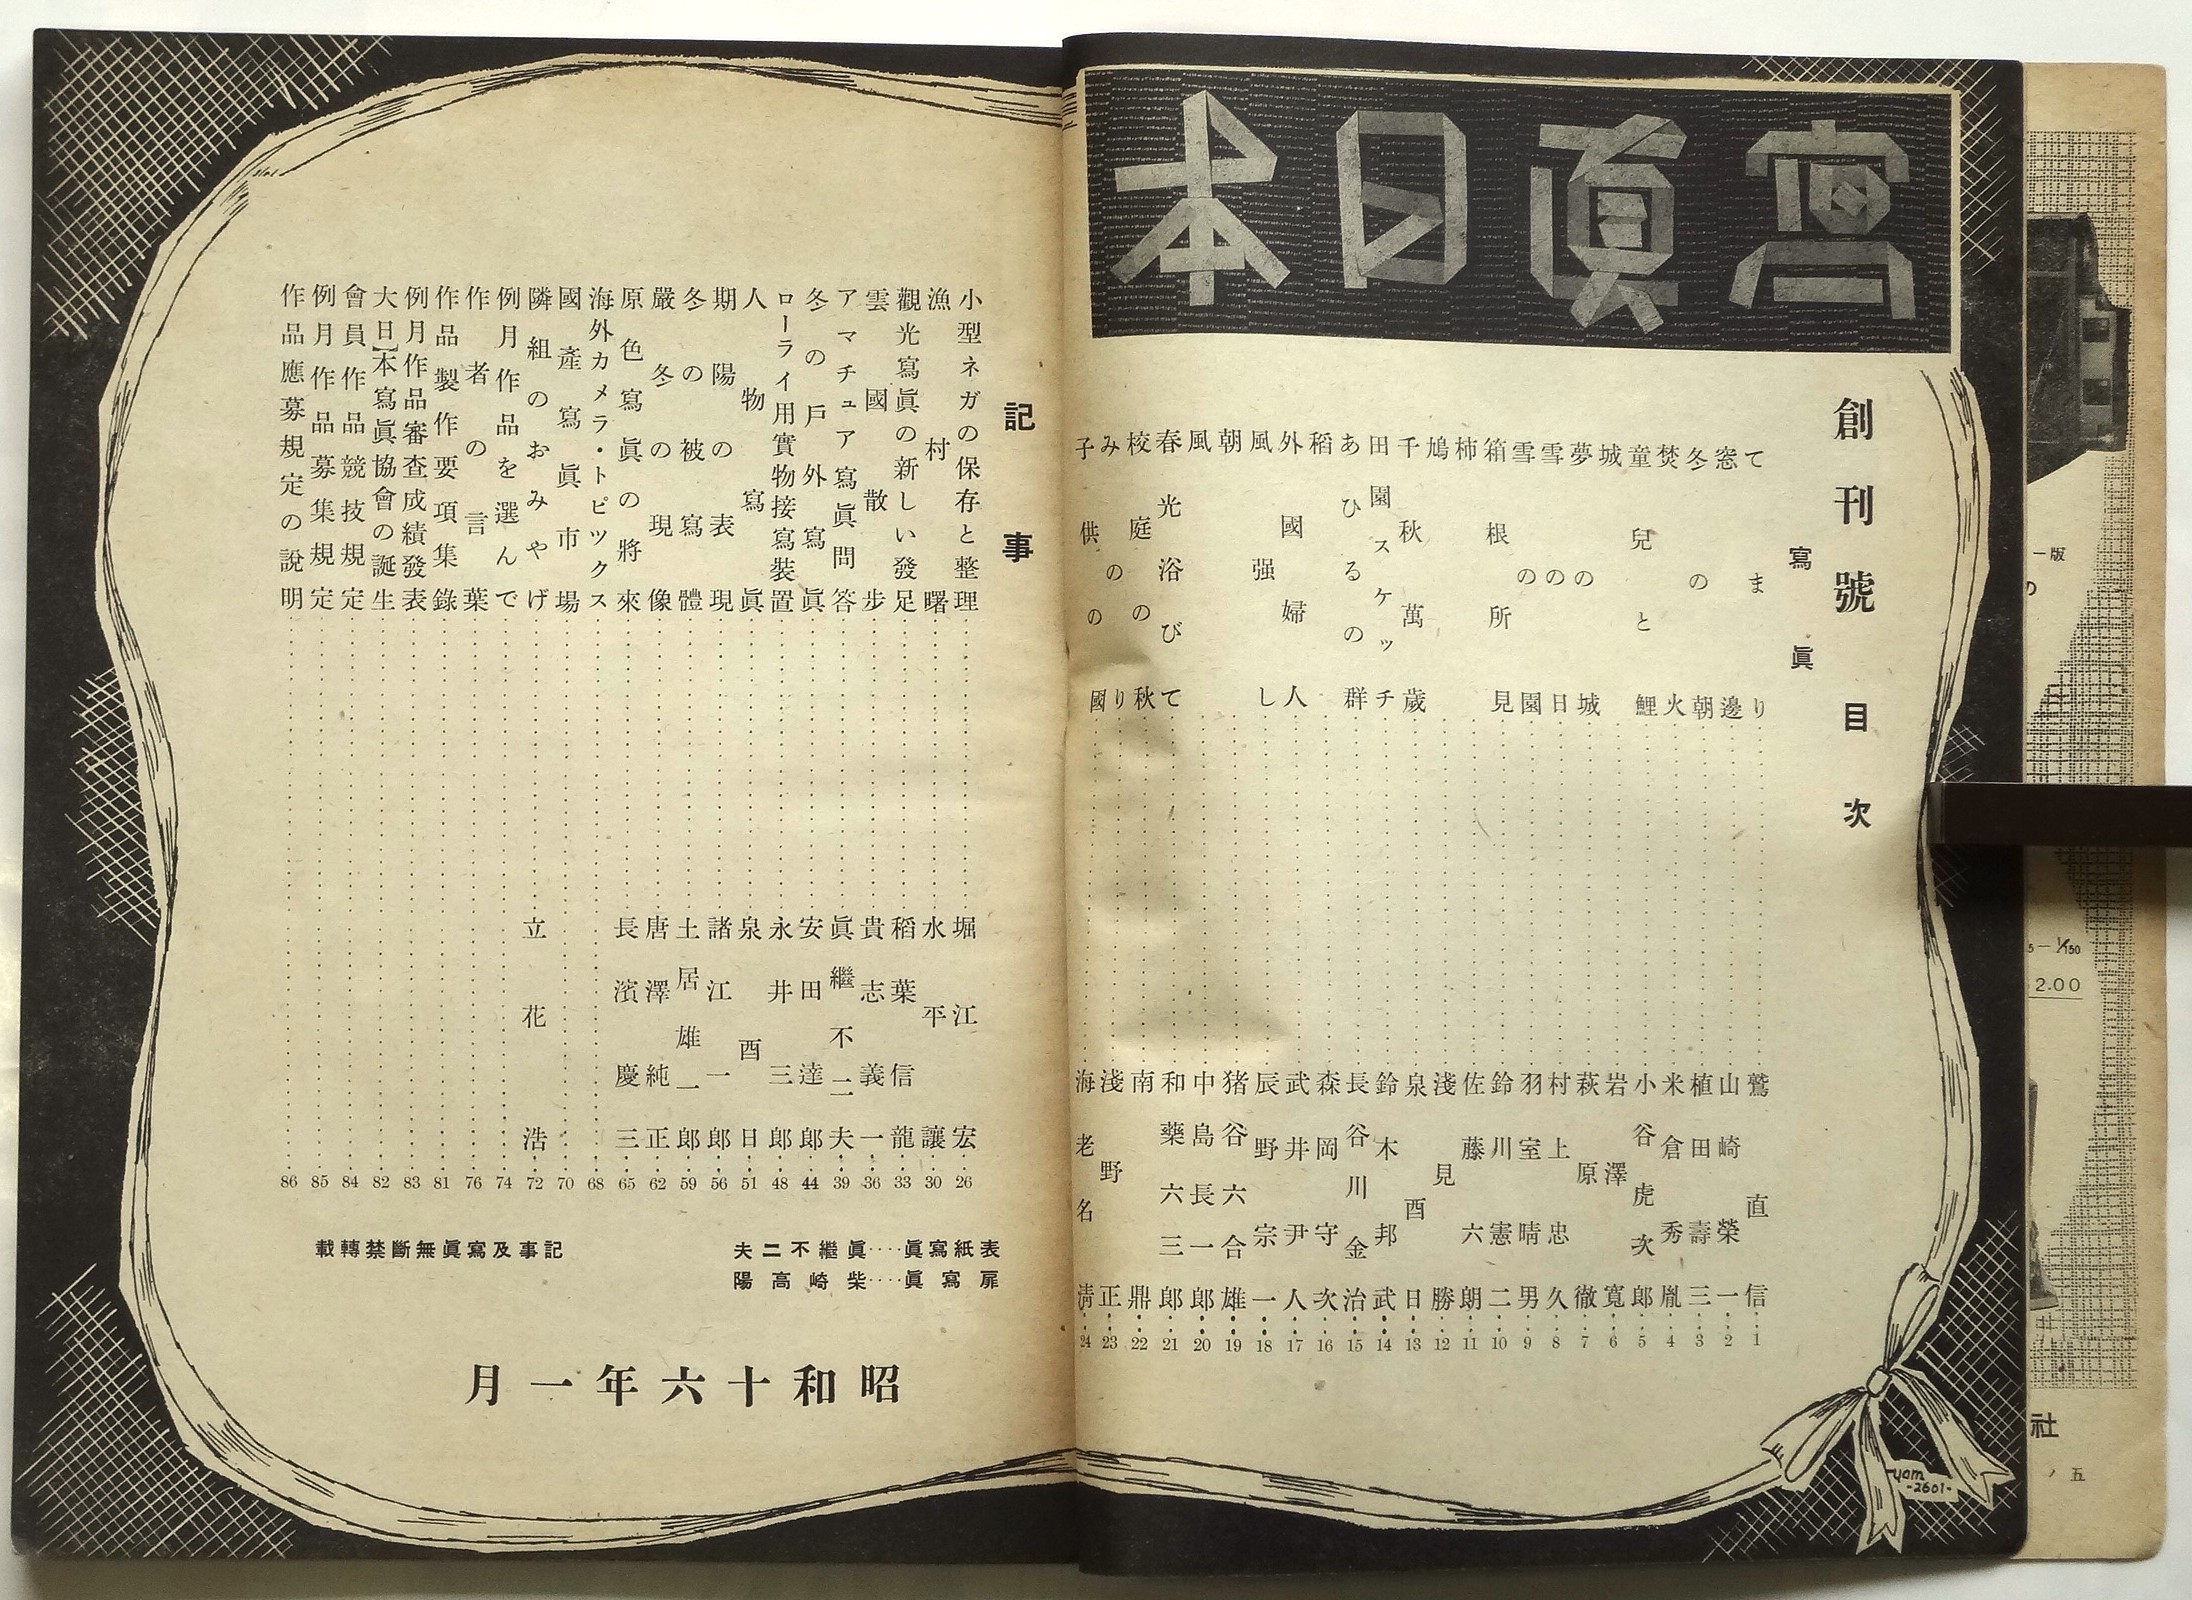 寫眞日本
創刊號 目次
寫眞
てまり 鷲直信 1
窓邊 山崎榮一 2
冬の朝 植田壽三 3
焚火 米倉秀胤 4
童兒と鯉 小谷虎次郎 5
城 岩澤寬 6
夢の城 萩原徹 7
雪の日 村上忠久 8
雪の園 羽室晴男 9
箱根所見 鈴川憲二 10
柿 佐藤六朗 11
鳩 淺見勝 12
千秋萬歲 泉酉日 13
田園スケッチ 鈴木邦武 14
あひるの群 長谷川金治 15
稻 森岡守次 16
外國婦人 武井尹人 17
風强し 辰野宗一 18
朝 猪谷六合雄 19
風 中島長一郎 20
春光浴びて 和藥六三郎 21
校庭の秋 南鼎 22
みのり 淺野正 23
子供の國 海老名淸 24
記事
小型ネガの保存と整理 堀江宏 26
漁村曙 水平讓 30
觀光寫眞の新しい發足 稻葉信龍 33
雲國散步 貴志義一 36
アマチュア寫眞問答 眞繼不二夫 39
冬の戶外寫眞 安田達郎 44
ローライ用實物接寫裝置 永井三郎 48
人物寫眞 泉酉日 51
期陽の表現 諸江一郎 56
冬の被寫體 土居雄一郎 59
嚴冬の現像 唐澤純正 62
原色寫眞の將來 長濱慶三 65
海外カメラ・トピックス 68
國產寫眞市場 70
隣組のおみやげ 立花浩 72
例月作品を選んで 74
作者の言葉 76
作品製作要項集錄 81
例月作品審查成績發表 83
大日本寫眞協會の誕生 82
會員作品競技規定 84
例月作品募集規定 85
作品應募規定の說明 86
表紙寫眞‥‥眞繼不二夫
扉寫眞‥‥柴崎高陽
記事及寫眞無斷禁轉載
昭和十六年一月
yam
-2601-
一版
の
1/150
2.00
社
ノ五